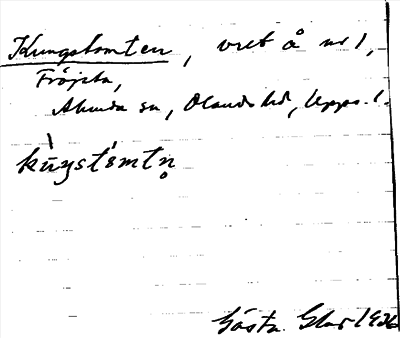 Kungstomten, vret å nr 1,
Fröjsta,
Alunda sn, Olands hd, Upps. l.
kùŋstómtn̥
Gösta 1936